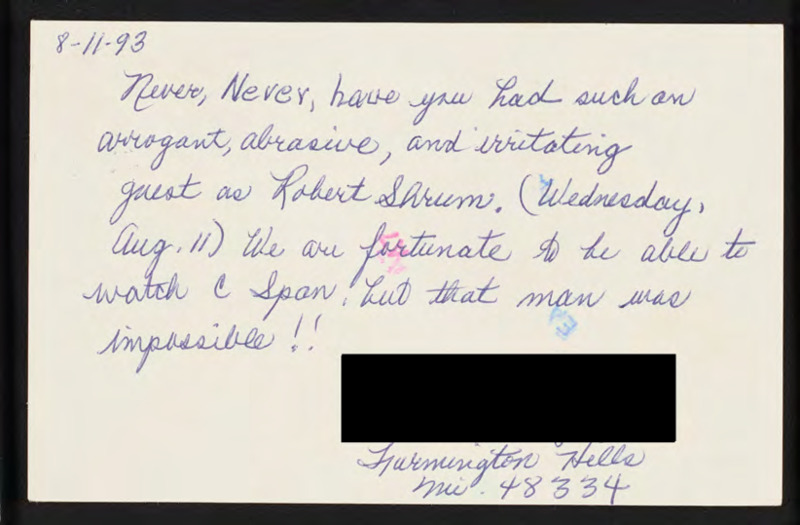 8-11-93
Never, Never, have you had such an
arrogant, abrasive, and irritating
guest as Robert Shrum. (Wednesday,
Aug. 11) We are fortunate to be able to
watch C Span, but that man was
impossible!!
Farmington Hills
Mi. 48334